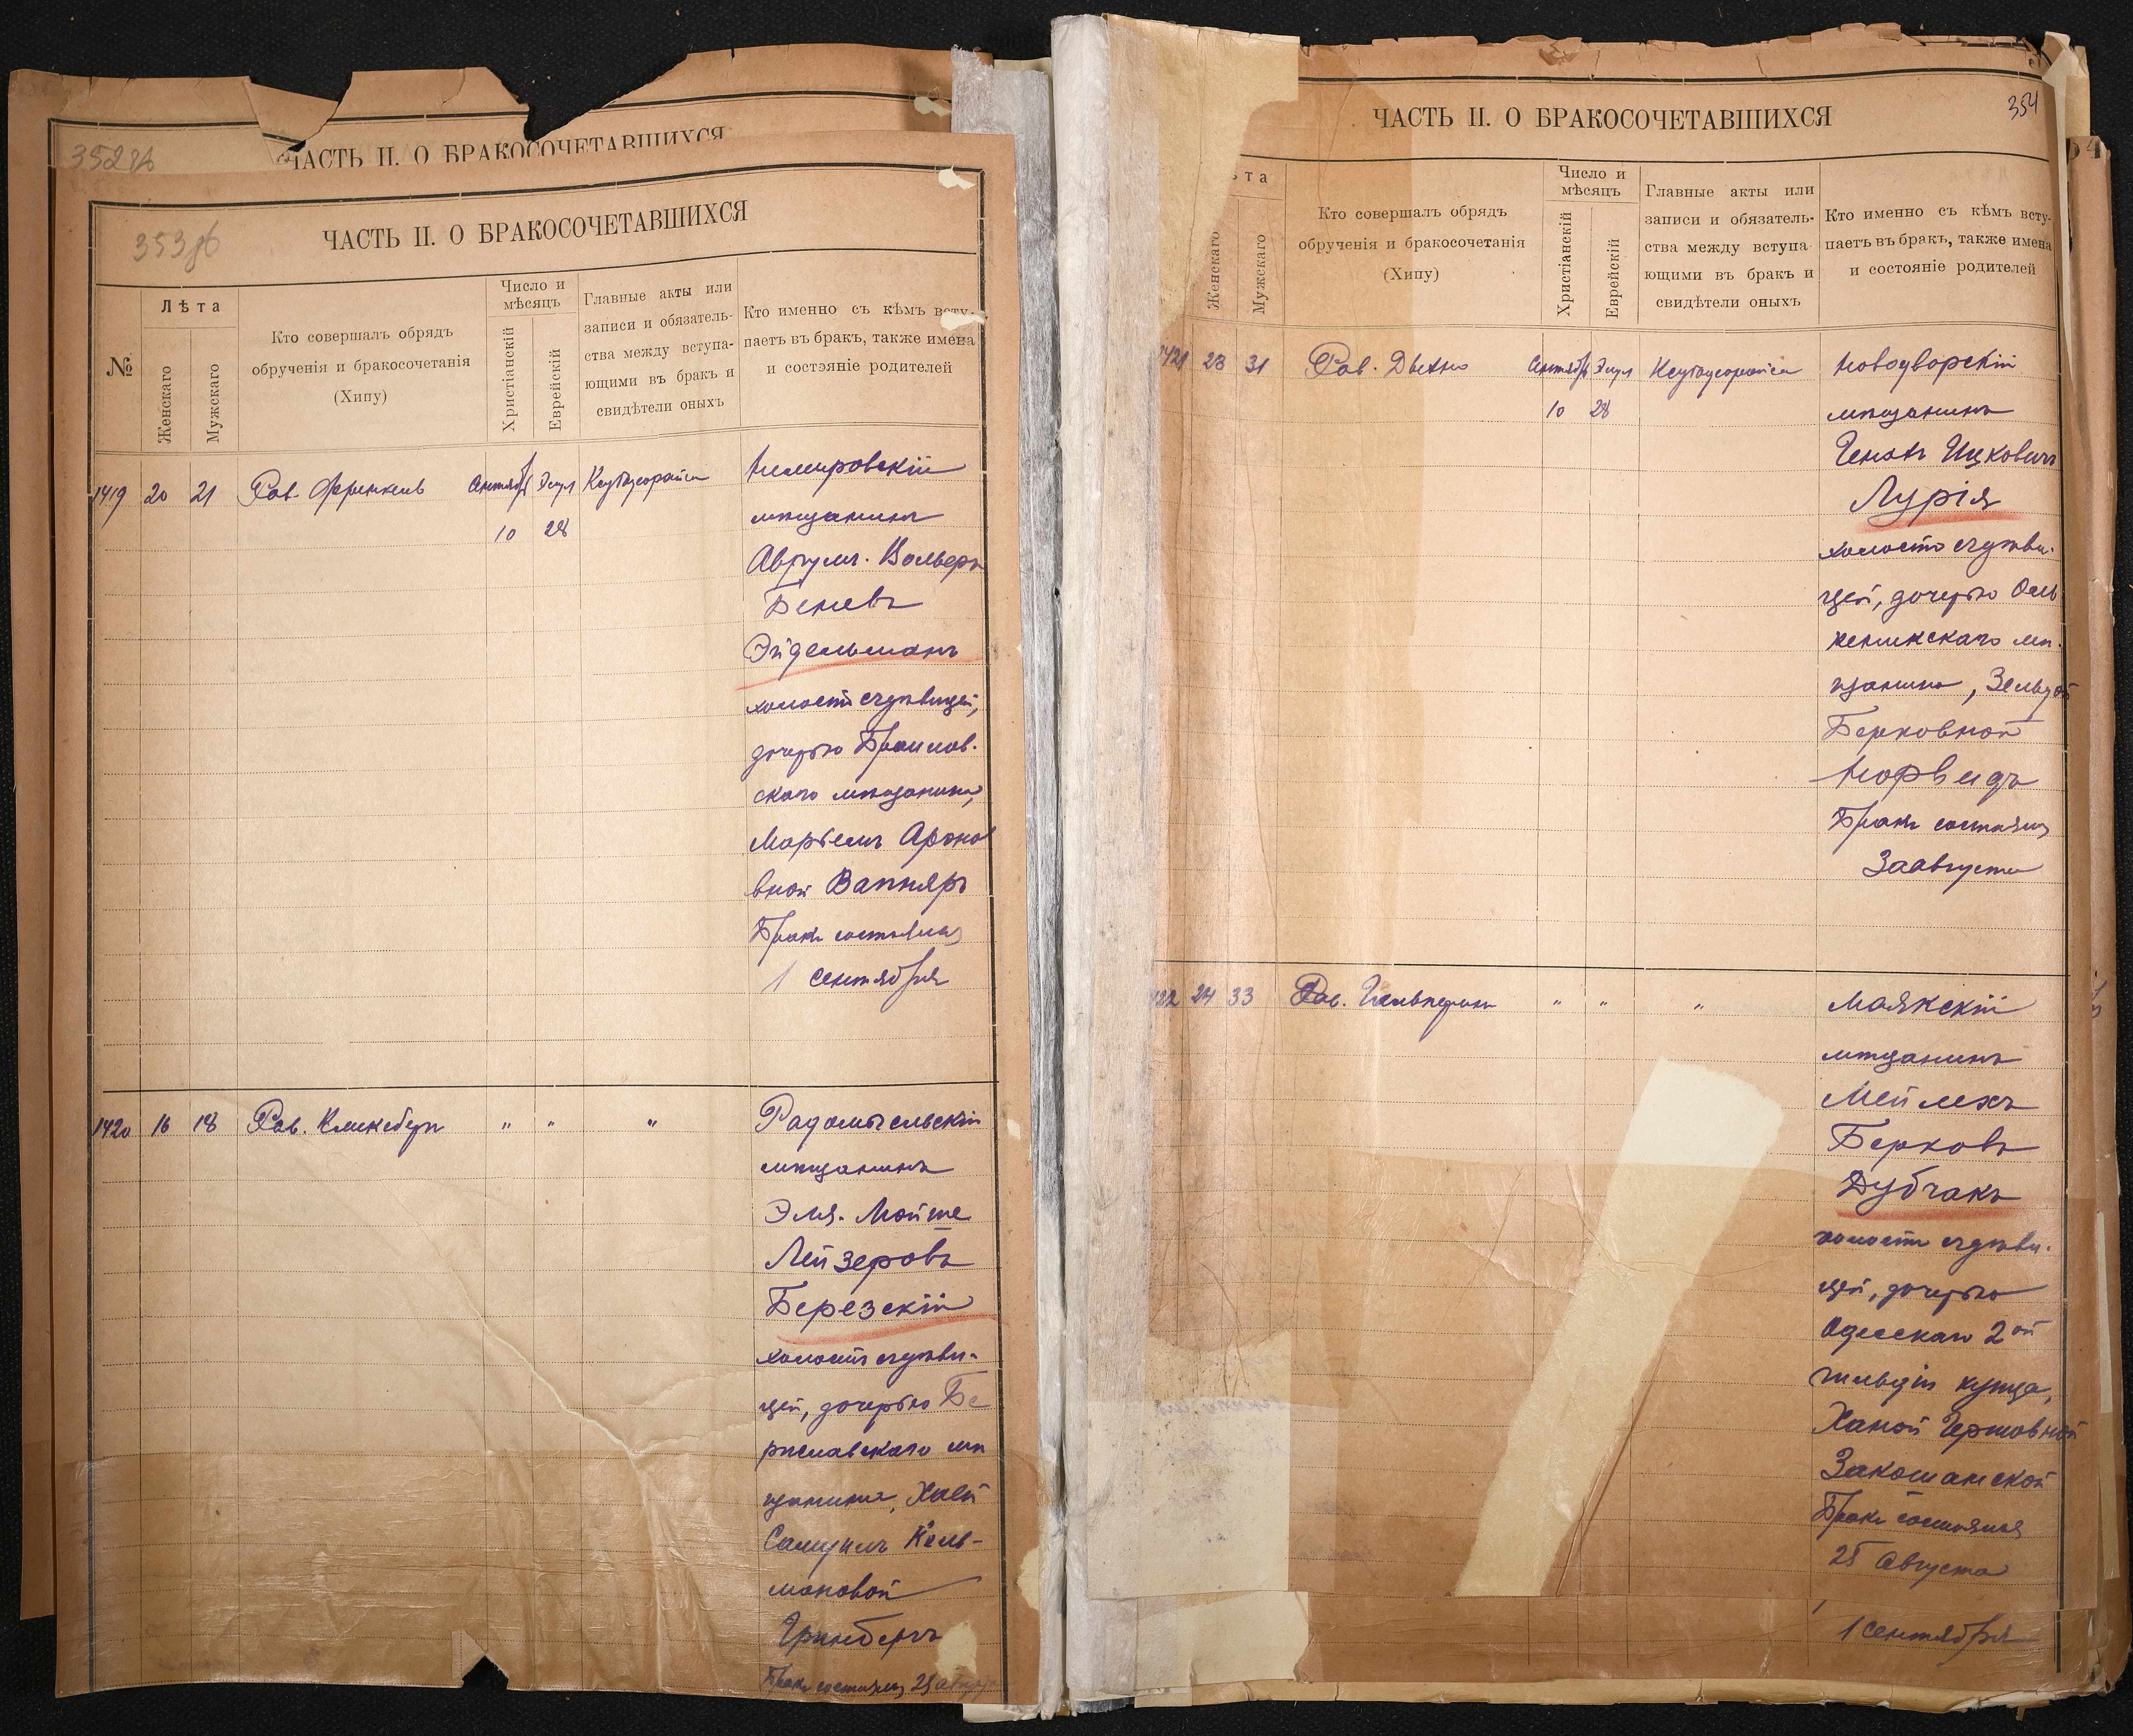 352 об
ЧАСТЬ II. О БРАКОСОЧЕТАВШИХСЯ
353 об
ЧАСТЬ II. О БРАКОСОЧЕТАВШИХСЯ
№
Лѣта
Женскаго
Мужскаго
Кто совершалъ обрядъ
обрученія и бракосочетанія
(Хипу)
Число и
мѣсяцъ
Христіанскій
Еврейскій
Главные акты или
записи и обязатель-
ства между вступа-
ющими въ бракъ и
свидѣтели оныхъ
Кто именно съ кѣмъ всту-
паетъ въ бракъ, также имена
и состояніе родителей
1419 20 21 Рав. Френкель Сентябр Элул
10 28
Немировскій
мѣщанинъ
Аврумъ-Вольфъ
Беневъ
Эйдельманъ
холостъ съ дѣвицей,
дочерью Браилов-
скаго мѣщанина,
Маріемъ Ароно
вной Вапняръ
Бракъ состоялся
1 Сентября
1420 16 18 Рав. " " "
Радомысльскій
мѣщанинъ
Эля-Мойше
Лейзеровъ
Березскій
холостъ съ дѣви-
цей, дочерью Бе
риславскаго мѣ
щанина, Хаей
Кель-
мановой
Гринбергъ
Бракъ состоялся 25 августа
354
ЧАСТЬ II. О БРАКОСОЧЕТАВШИХСЯ
ѣта
Женскаго
Мужскаго
Кто совершалъ обрядъ
обрученія и бракосочетанія
(Хипу)
Число и
мѣсяцъ
Христіанскій
Еврейскій
Главные акты или
записи и обязатель-
ства между вступа-
ющими въ бракъ и
свидѣтели оныхъ
Кто именно съ кѣмъ всту-
паетъ въ бракъ, также имена
и состояніе родителей
1421 23 31 Рав. Дыхно Сентябр Элул
10 28
Новодворскій
мѣщанинъ
Генохъ Ицковичъ
Лурія
холостъ съ дѣви-
цей, дочерью Оль
кеникскаго мѣ-
щанина, Зельдой
Берковной
Норвидъ
Бракъ состоялся
3 августа
422 24 33 Рав. Гальперинъ " " "
Маякскій
мѣщанинъ
Мейлехъ
Берковъ
Дубчакъ
холостъ съ дѣви-
цей, дочерью
Одесскаго 2ой
гильдіи купца,
Ханой Гершовной
Закошанской
Бракъ состоялся
25 Августа
1 Сентября